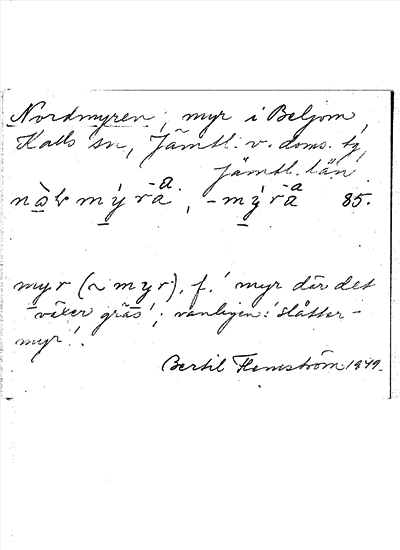 Nordmyren, myr i Beljom,
Kalls sn, Jämtl. v. doms. tg,
Jämtl. län.
85.
myr (~ myr). f. 'myr där det
växer gräs'; vanligen: 'slåtter-
myr'.
Bertil Flemström 1949.